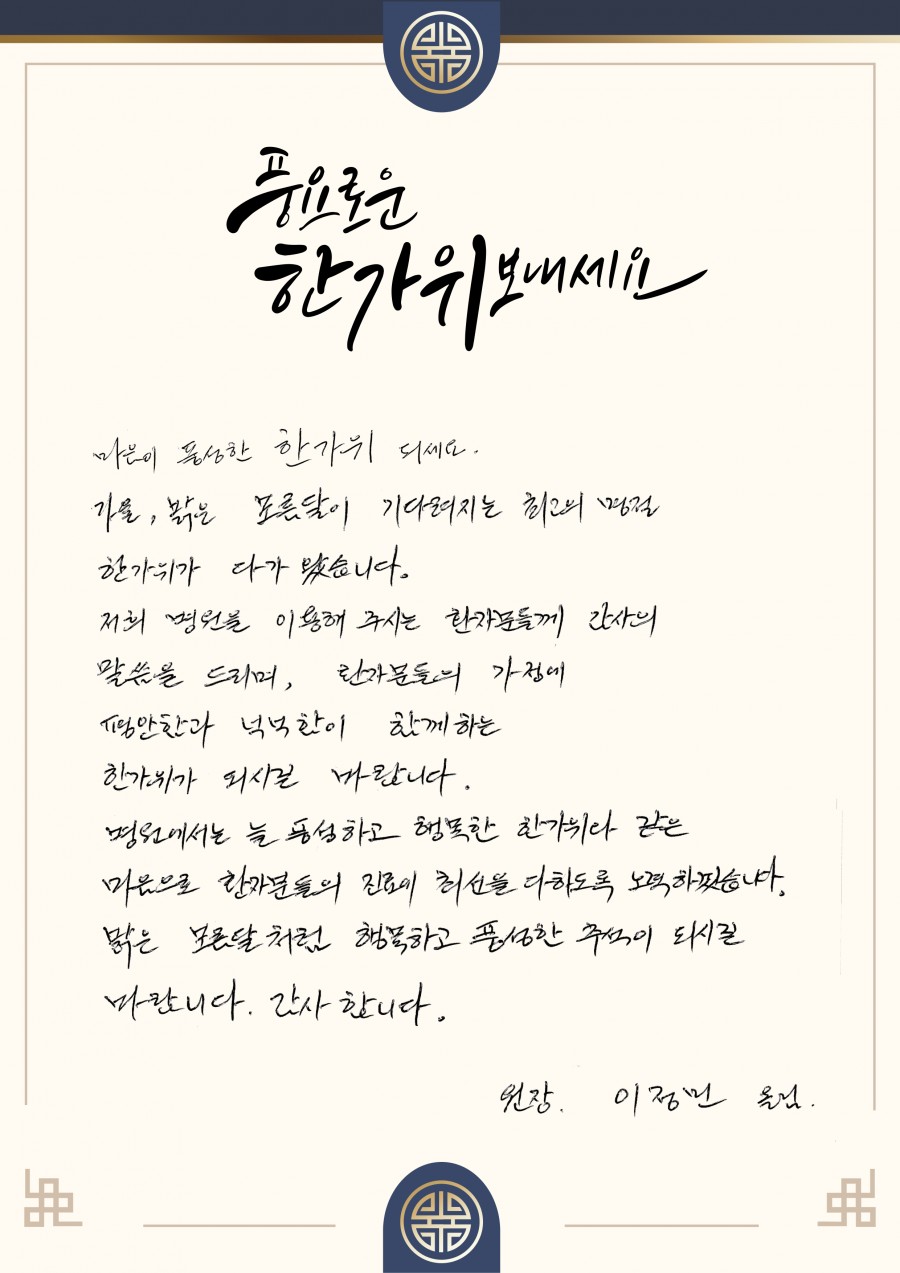 풍요로운
한가위 보내세요
마음이 풍성한 한가위 되세요.
가을, 밝은 보름달이 기다려지는 최고의 명절
한가위가 다가 왔습니다.
저희 병원을 이용해 주시는 환자분들께 감사의
말씀을 드리며, 환자분들의 가정에
평안함과 넉넉함이 함께하는
한가위가 되시길 바랍니다.
병원에서는 늘 풍성하고 행복한 한가위와 같은
마음으로 환자분들의 진료에 최선을 다하도록 노력하겠습니다.
밝은 보름달처럼 행복하고 풍성한 추석이 되시길
바랍니다. 감사합니다.
원장. 이정민 올림.